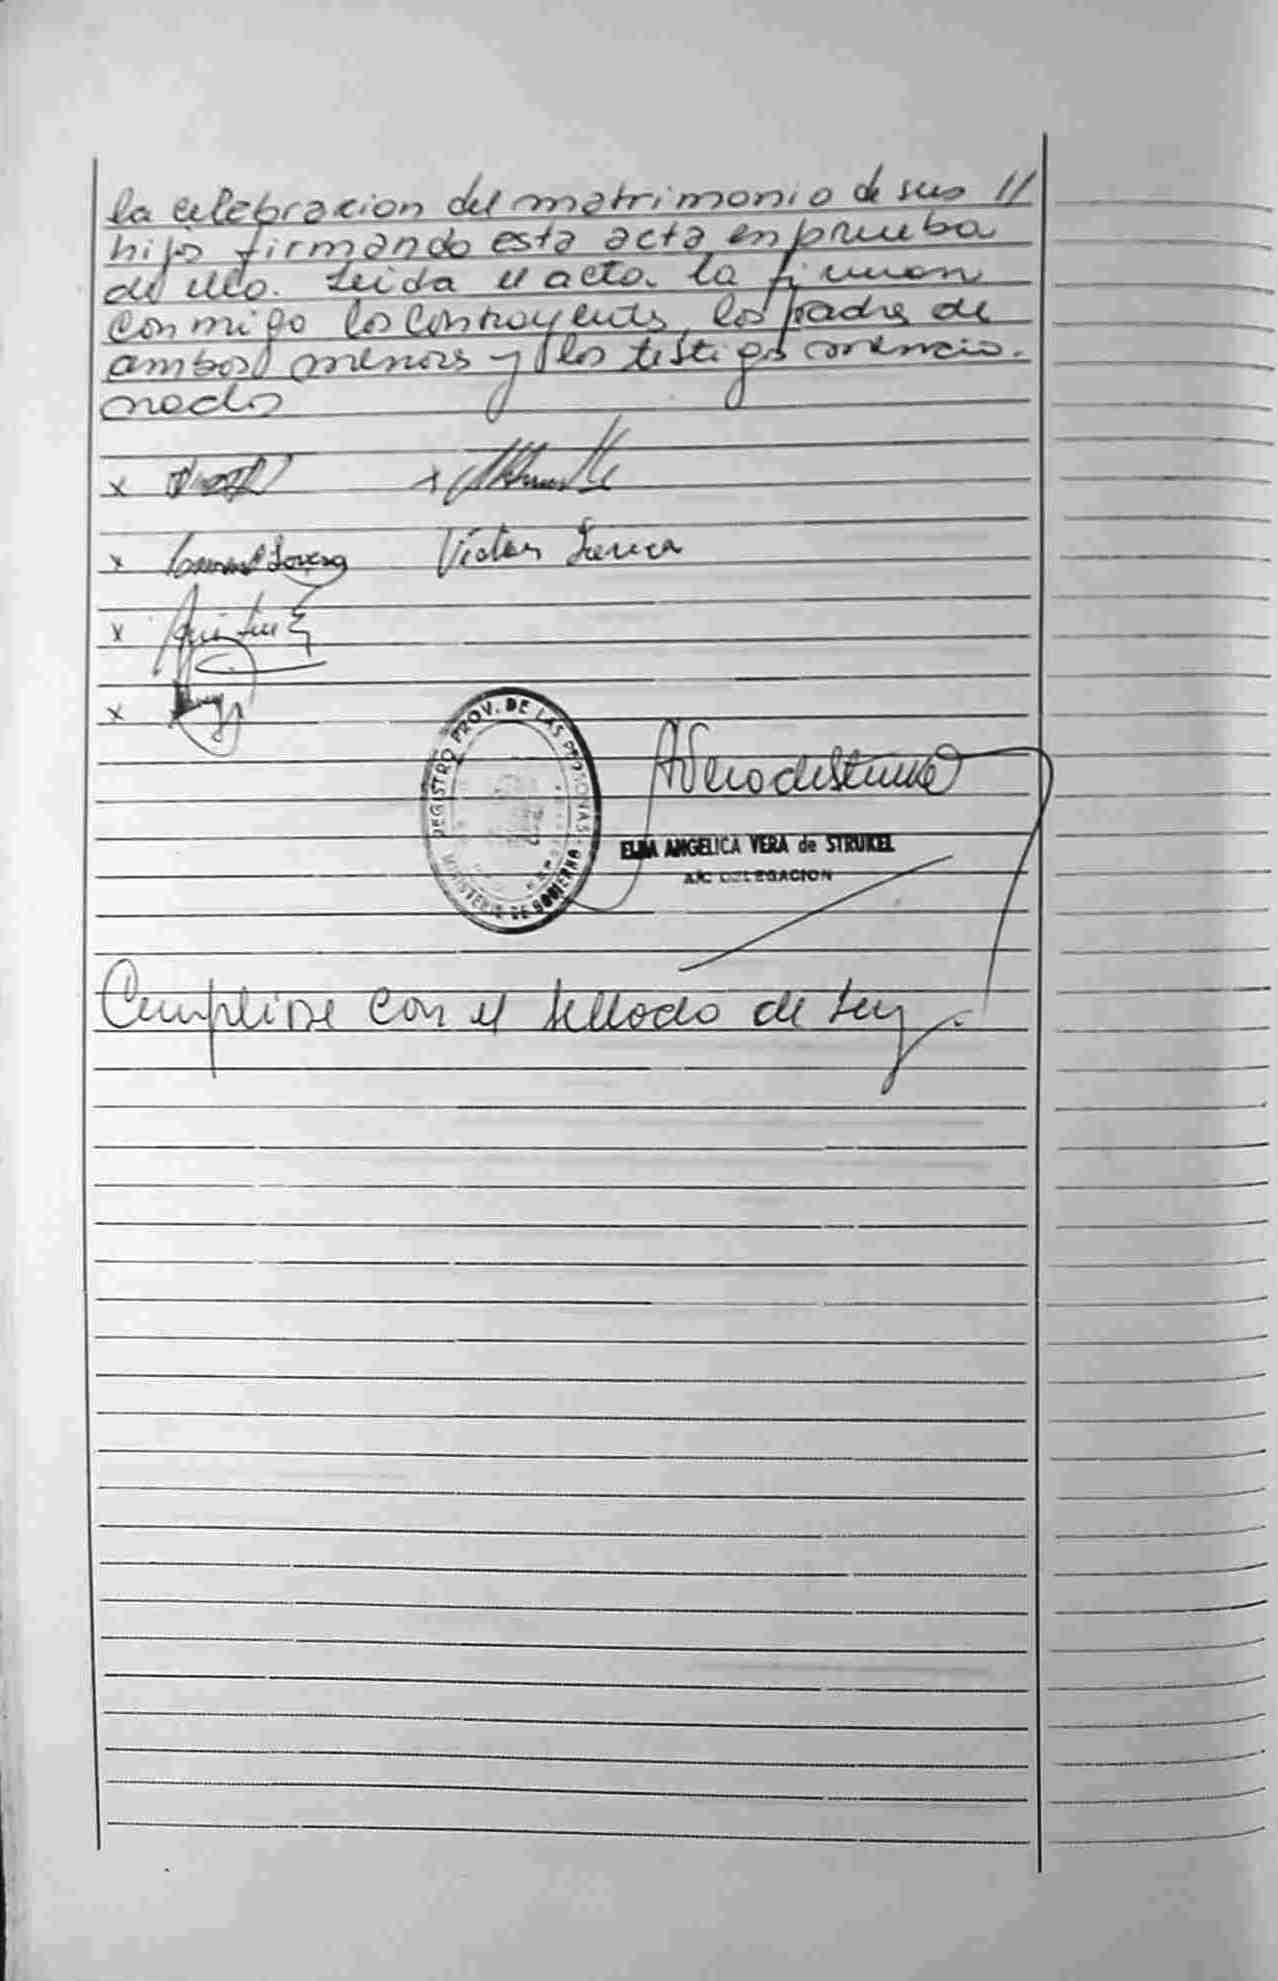 la celebracion del matrimonio de sus //
hijos firmando esta acta en prueba
de ello. Leida el acta. la firman
conmigo los contrayentes, los padres de
ambos menores y los testigos mencio-
nados
x x
x Victor
x
x
REGISTRO PROV. DE LAS PERSONAS
MINISTERIO DE GOBIERNO
ELBA ANGELICA VERA de STRUKEL
A/C DELEGACION
Cumplise con el sellado de Ley.